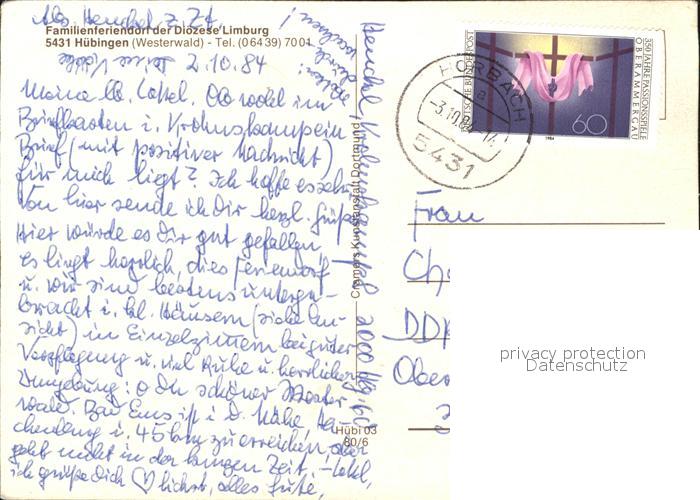 Abs. Henschel, z. Zt.
Familienferiendorf der Diözese Limburg
5431 Hübingen (Westerwald) - Tel. (06439) 7001
2.10.84
Meine lb. Ob wohl im
Briefkasten i. Krohnskamp ein
Brief (mit positiver Nachricht)
für mich liegt? Ich hoffe es sehr.
Von hier sende ich Dir herzl. Grüße.
Hier würde es Dir gut gefallen,
es liegt herrlich, dies Feriendorf
u. wir sind bestens unterge-
bracht i. kl. Häusern (siehe An-
sicht) in Einzelzimmern bei guter
Verpflegung u. viel Ruhe u. herrlicher
Umgebung: o Du schöner Wester-
wald. Bad Ems ist i. d. Nähe
i. 45 km zu erreichen, aber
geht nicht in der kurzen Zeit.
ich grüße Dich alles Gute,
Henschel Krohnskamp 2000 Hbg. 60
Cramers Kunstanstalt Dortmund
Hübi 03
80/6
DEUTSCHE BUNDESPOST
350 JAHRE PASSIONSSPIELE
OBERAMMERGAU
60
1984
HORBACH
a
-3.10.84
5431
Frau
Ch
DDR
Ober
privacy protection
Datenschutz